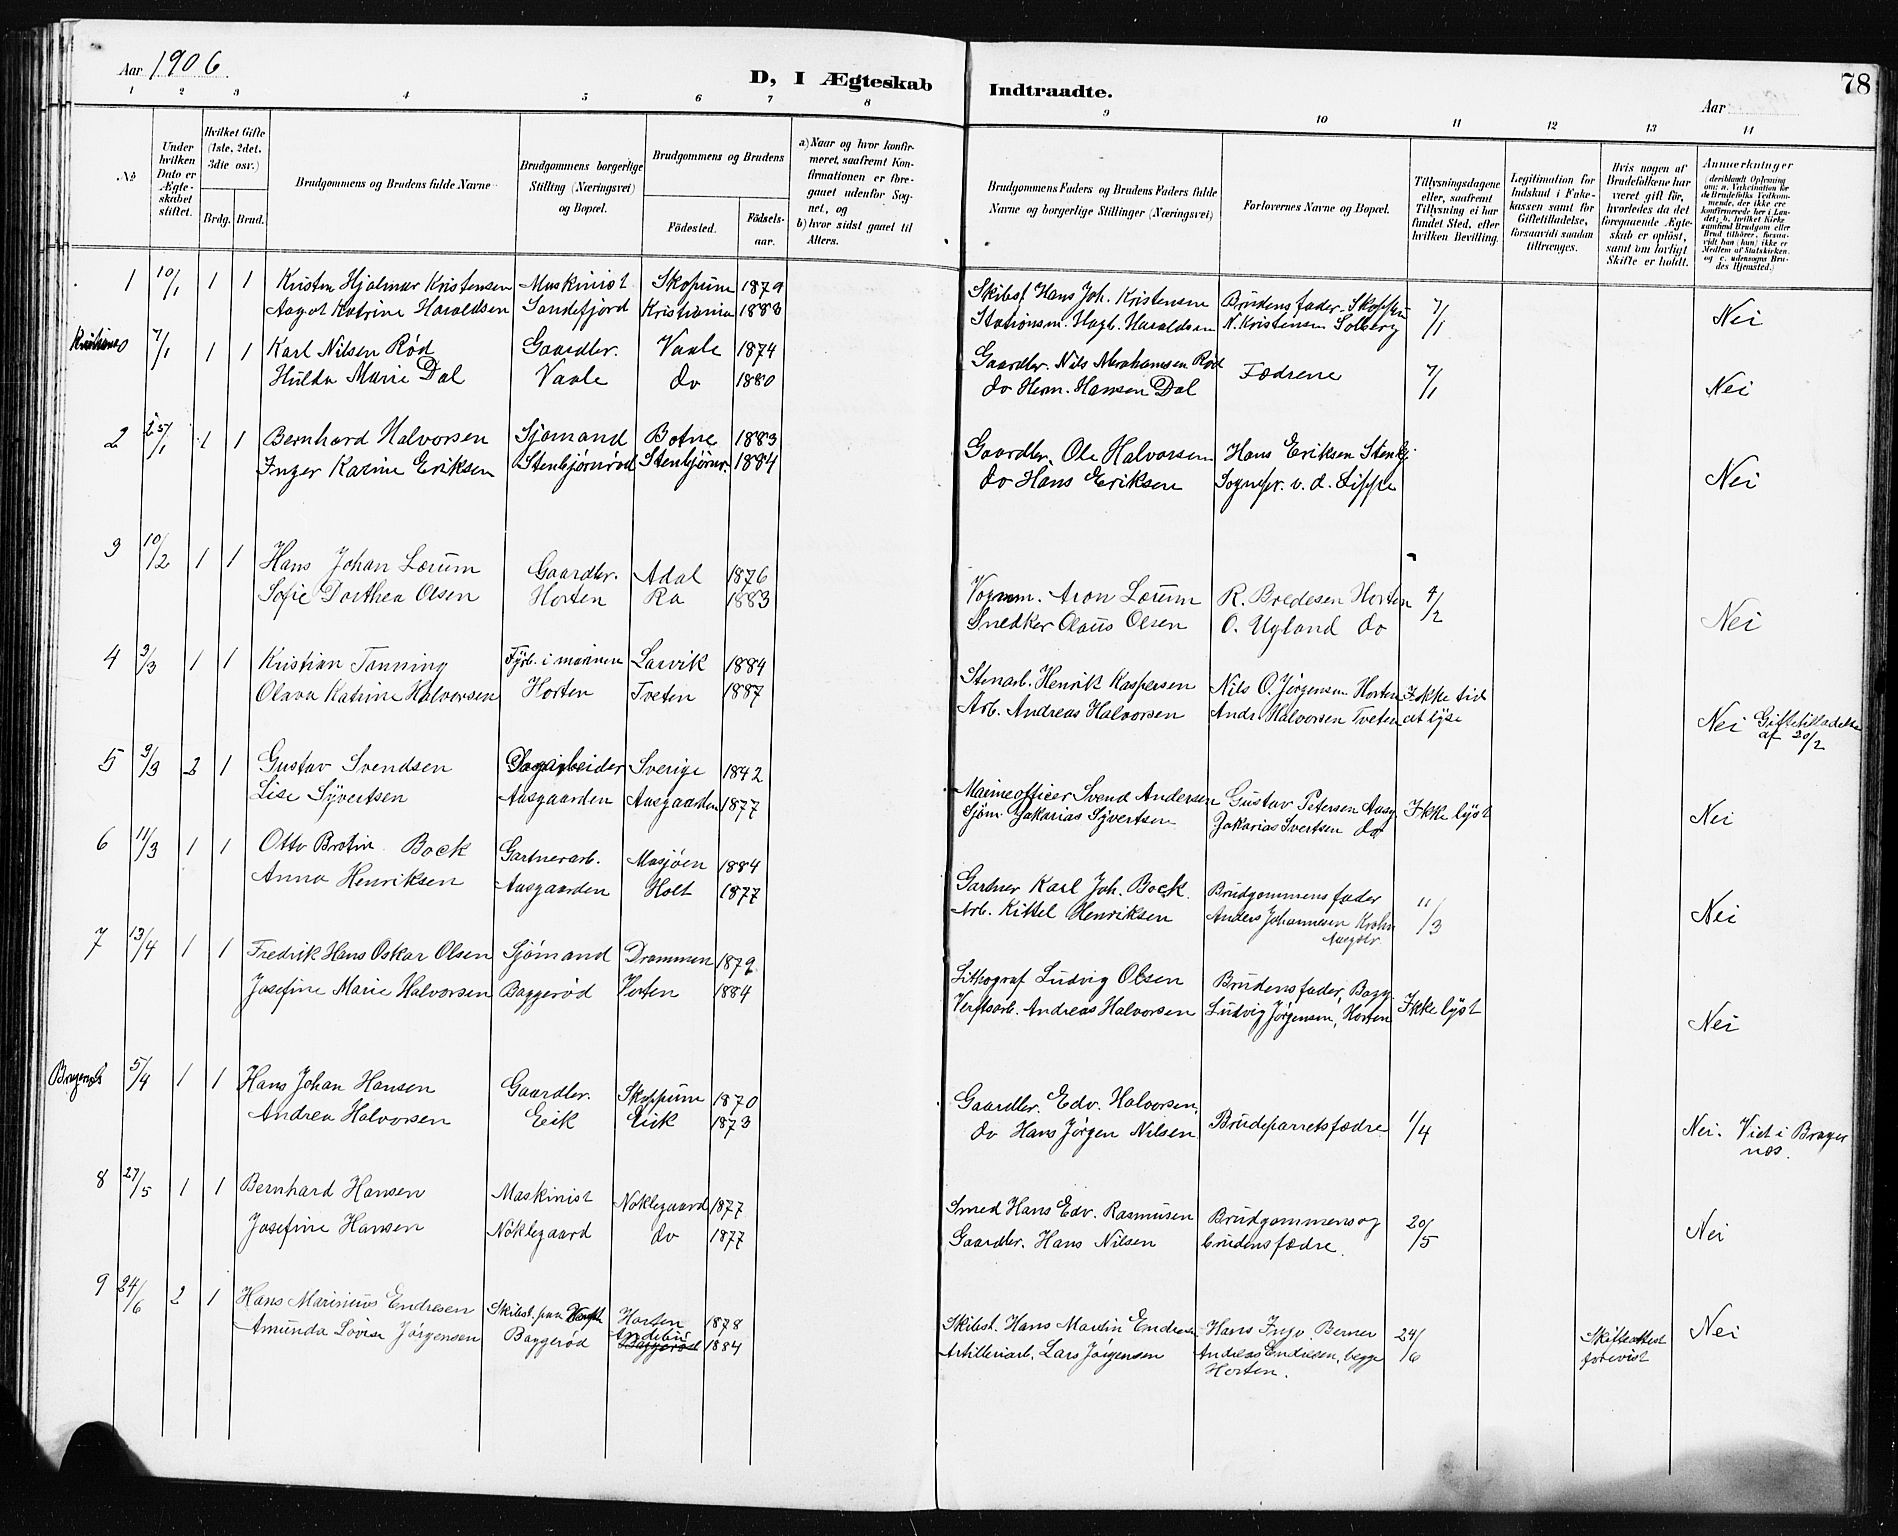 Aar 1906
D, I Ægteskab Indtraadte.
78
Aar
1 2 3 4 5 6 7 8 9 10 11 12 13 14
No
Under hvilken Dato er Ægteskabet stiftet.
Hvilket Gifte (1ste, 2det, 3die osv.)
Brdg. Brud.
Brudgommens og Brudens fulde Navne
Brudgommens borgerlige Stilling (Næringsvei) og Bopæl.
Brudgommens og Brudens
Födested. Födselsaar.
a) Naar og hvor konfirmeret, saafremt Konfirmationen er foregaaet udenfor Sognet, og
b) hvor sidst gaaet til Alters.
Brudgommens Faders og Brudens Faders fulde Navne og borgerlige Stillinger (Næringsvei)
Forlovernes Navne og Bopæl.
Tillysningsdagene eller, saafremt Tillysning ei har fundet Sted, efter hvilken Bevilling.
Legitimation for Indskud i Enkekassen samt for Giftetilladelse, forsaavidt saadan tiltrænges.
Hvis nogen af Brudefolkene har været gift för, hvorledes da det foregaaende Ægteskab er oplöst, samt om lovligt Skifte er holdt.
Anmærkninger (deriblandt Oplysning om: a. Vakcination for de Brudefolks Vedkommende, der ikke ere konfirmerede her i Landet; b. hvilket Kirkesamfund Brudgom eller Brud tilhører, forsaavidt han (hun) ikke er Medlem af Statskirken, og c. udensogns Brudes Hjemsted.)
1 10/1 1 1 Kristen Hjalmar Kristensen Maskinist Skopum 1879 Skibst Hans Joh. Kristensen Brudens fader, Skoppum 7/1 Nei
Aagot Katrine Haraldsen Sandefjord Kristiania 1883 Stationsm. Hagb. Haraldsen N. Kristensen Solberg
7/1 1 1 Karl Nilsen Rød Gaardbr. Vaale 1874 Gaardbr. Nils Abrahamsen Rød Fædrene 7/1 Nei
Hulda Marie Dal Vaale do 1880 do Herm. Hansen Dal
2 25/1 1 1 Bernhard Halvorsen Sjømand Botne 1883 Gaardbr. Ole Halvorsen Hans Eriksen Stenbj. Nei
Inger Karine Eriksen Stenbjørnrød Stenbjørnr. 1884 do Hans Eriksen Sognepr. v. d. Lippe
3 10/2 1 1 Hans Johan Lærum Gaardbr. Adal 1876 Vognm. Aron Lærum R. Bredesen Horten 4/2 Nei
Sofie Dorthea Olsen Horten Ra 1883 Snedker Olaus Olsen O. Ugland do
4 3/3 1 1 Kristian Tanning Fyrb. i marinen Larvik 1884 Stenarb. Henrik Kaspersen Nils O. Jørgensen Horten Ikke tid Nei Giftetilladelse
Olava Katrine Halvorsen Horten Tveten 1887 Arb. Andreas Halvorsen Andr Halvorsen Tveten at lyse af 20/2
5 9/3 2 1 Gustav Svendsen Dagarbeider Sverige 1842 Marineofficer Svend Andersen Gustav Petersen Aasg. Ikke lyst Nei
Lise Syvertsen Aasgaarden Aasgaarden 1877 Sjøm. Zakarias Syvertsen Zakarias Svertsen do
6 11/3 1 1 Otto Brotin Bock Gartnerarb. Mosjøen 1884 Gartner Karl Joh. Bock Brudgommens fader 11/3 Nei
Anna Henriksen Aasgaarden Holt 1877 Arb. Kittel Henriksen Anders Johannesen Krohn
7 13/4 1 1 Fredrik Hans Oskar Olsen Sjømand Drammen 1879 Lithograf Ludvig Olsen Brudens fader, Bagg. Ikke lyst Nei
Josefine Marie Halvorsen Baggerød Horten 1884 Verftsarb. Andreas Halvorsen Ludvig Jørgensen, Horten
Bragernes 5/4 1 1 Hans Johan Hansen Gaardbr. Skoppum 1870 Gaardbr. Edv. Halvorsen Brudeparrets fædre 1/4 Nei. Viet i Bragernæs.
Andrea Halvorsen Eik Eik 1873 do Hans Jørgen Nilsen
8 27/5 1 1 Bernhard Hansen Maskinist Nøklegaard 1877 Smed Hans Edv. Rasmusen Brudgommens og 20/5 Nei
Josefine Hansen Nøklegaard do 1877 Gaardbr. Hans Nilsen brudens fædre.
9 24/6 2 1 Hans Marinius Endresen Skibst. paa Horten 1878 Skibst. Hans Martin Endresen Hans Ingv. Berner 24/6 Skifteattest forevist Nei
Amunda Lovise Jørgensen Baggerød Andebu Baggerød 1884 Artilleriarb. Lars Jørgensen Andreas Endresen, begge Horten.